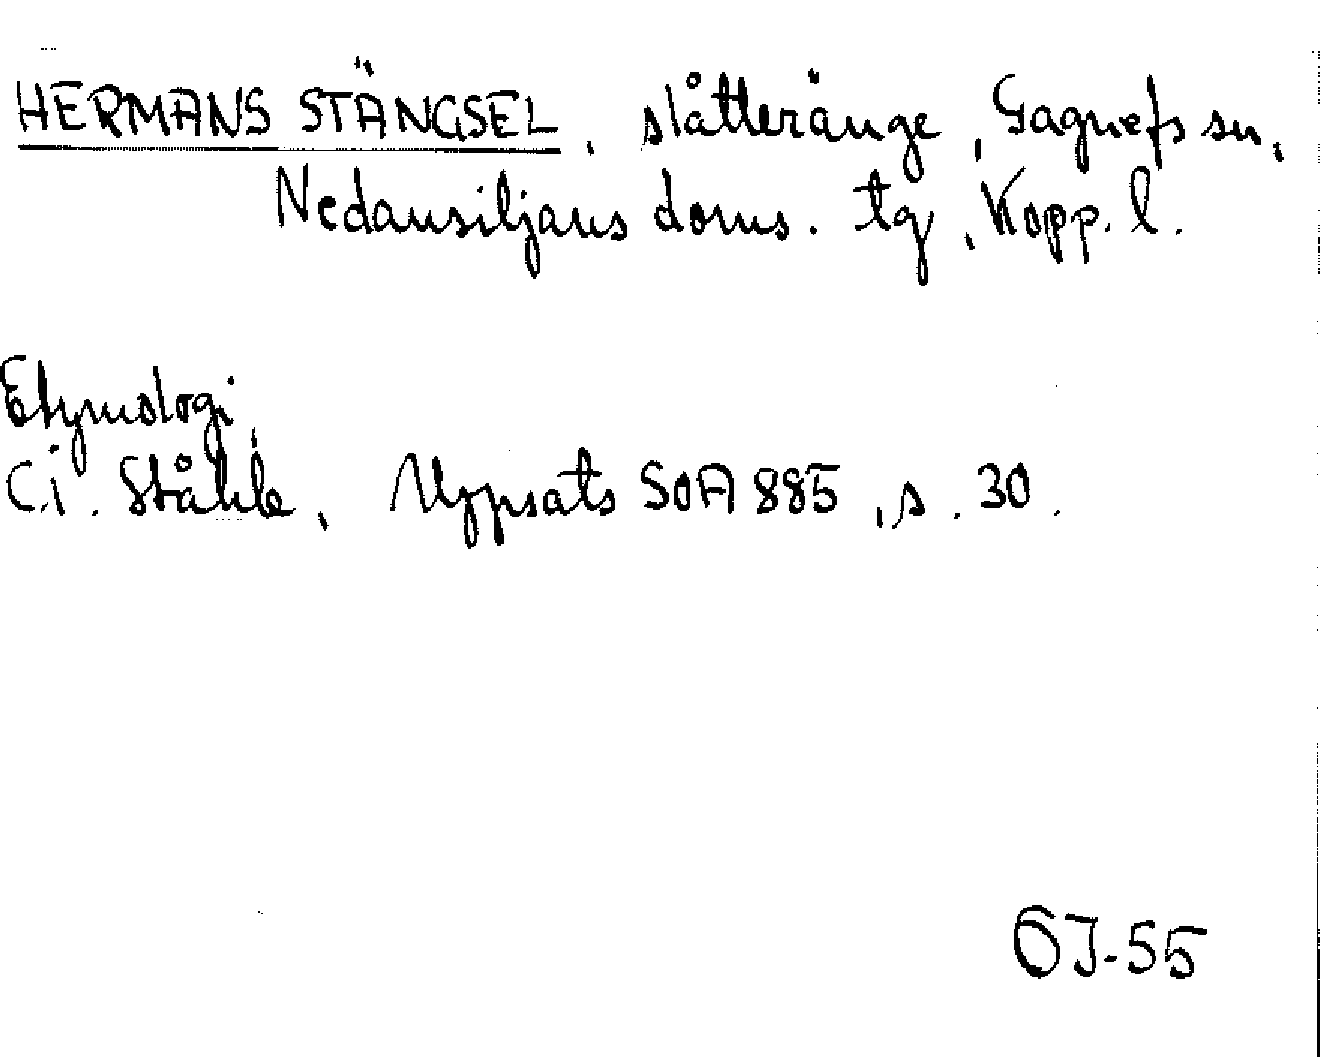 HERMANS STÄNGSEL, slåtteränge, Gagnefs sn,
Nedansiljans doms. tg, Kopp. l.
Etymologi
C.I. Ståhle, Uppsats SOA 885, s. 30.
ÖJ-55